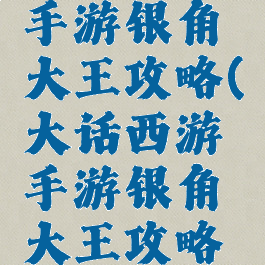 手游银角
大王攻略(
大话西游
手游银角
大王攻略